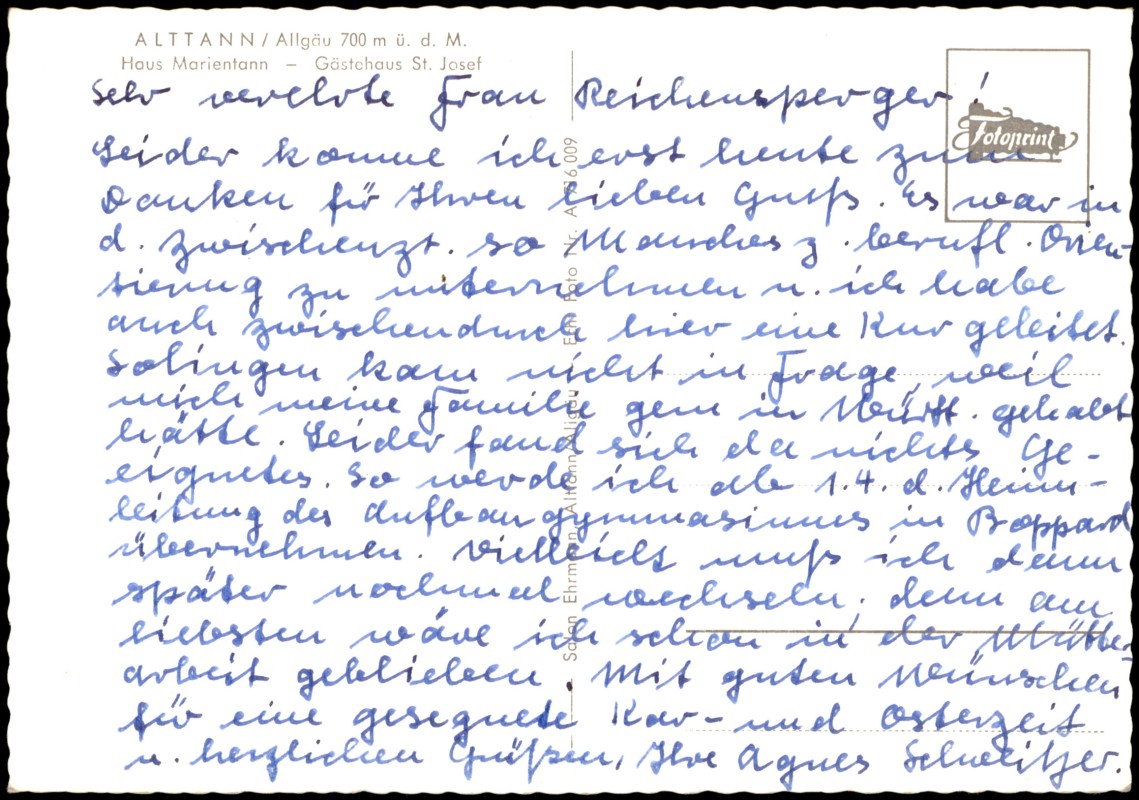 ALTTANN / Allgäu 700 m ü. d. M.
Haus Marientann – Gästehaus St. Josef
Fotoprint
Sehr verehrte Frau Reichensperger!
Leider komme ich erst heute zum
Danken für Ihren lieben Gruß. Es war in
d. Zwischenzt. so Manches z. berufl. Orien-
tierung zu unternehmen u. ich habe
auch zwischendurch hier eine Kur geleitet.
Solingen kam nicht in Frage, weil
mich meine Familie gern in Württ. gehabt
hätte. Leider fand sich da nichts Ge-
eignetes. So werde ich ab 1.4. d. Heim-
leitung des Aufbaugymnasiums in Boppard
übernehmen. Vielleicht muß ich dann
später nochmal wechseln, denn am
liebsten wäre ich schon in der Mütter-
arbeit geblieben. Mit guten Wünschen
für eine gesegnete Kar- und Osterzeit
u. herzlichen Grüßen, Ihre Agnes Schweitzer.
Ehrmann, Altmann/Allgäu Foto Nr. A 716 009